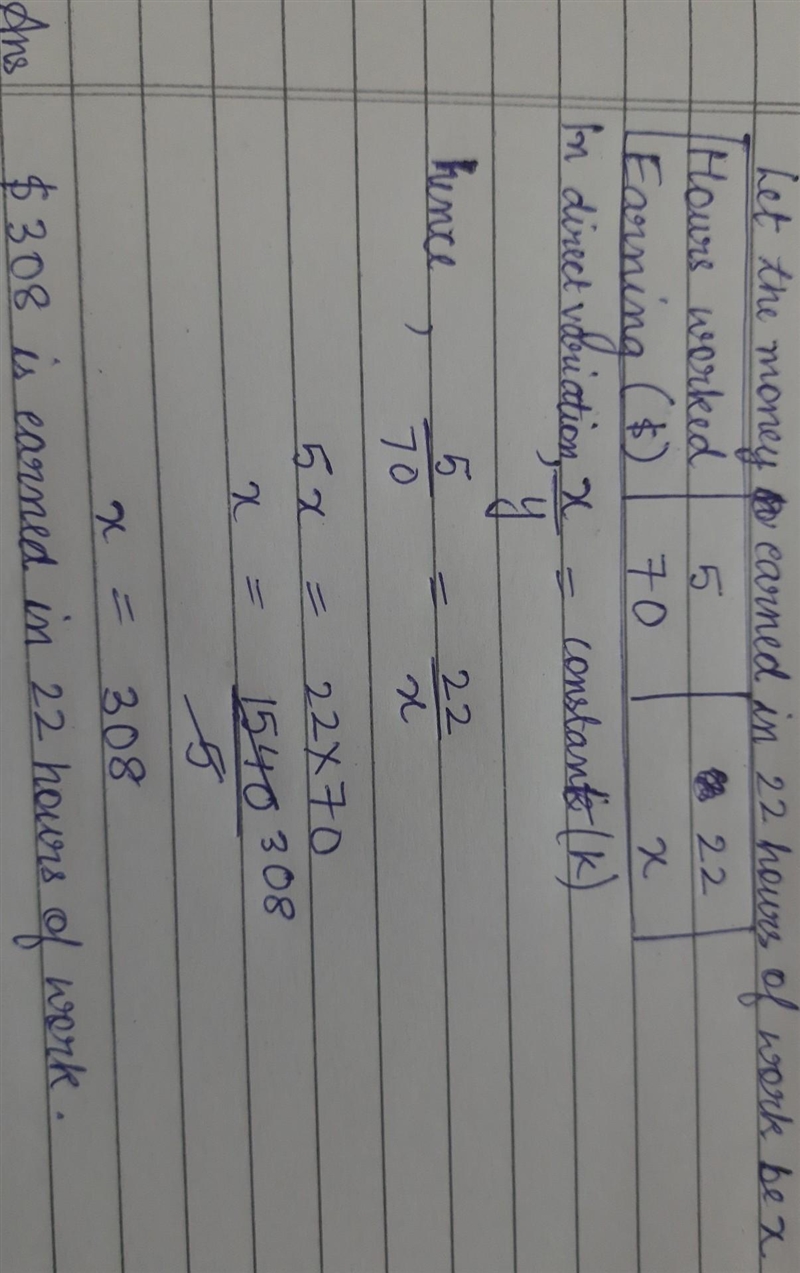 Let the money earned in 22 hours of work be x
Hours worked 5 22
Earning ($) 70 x
In direct variation, x/y = constant (k)
hence, 5/70 = 22/x
5x = 22×70
x = 1540/5 308
x = 308
Ans $308 is earned in 22 hours of work.